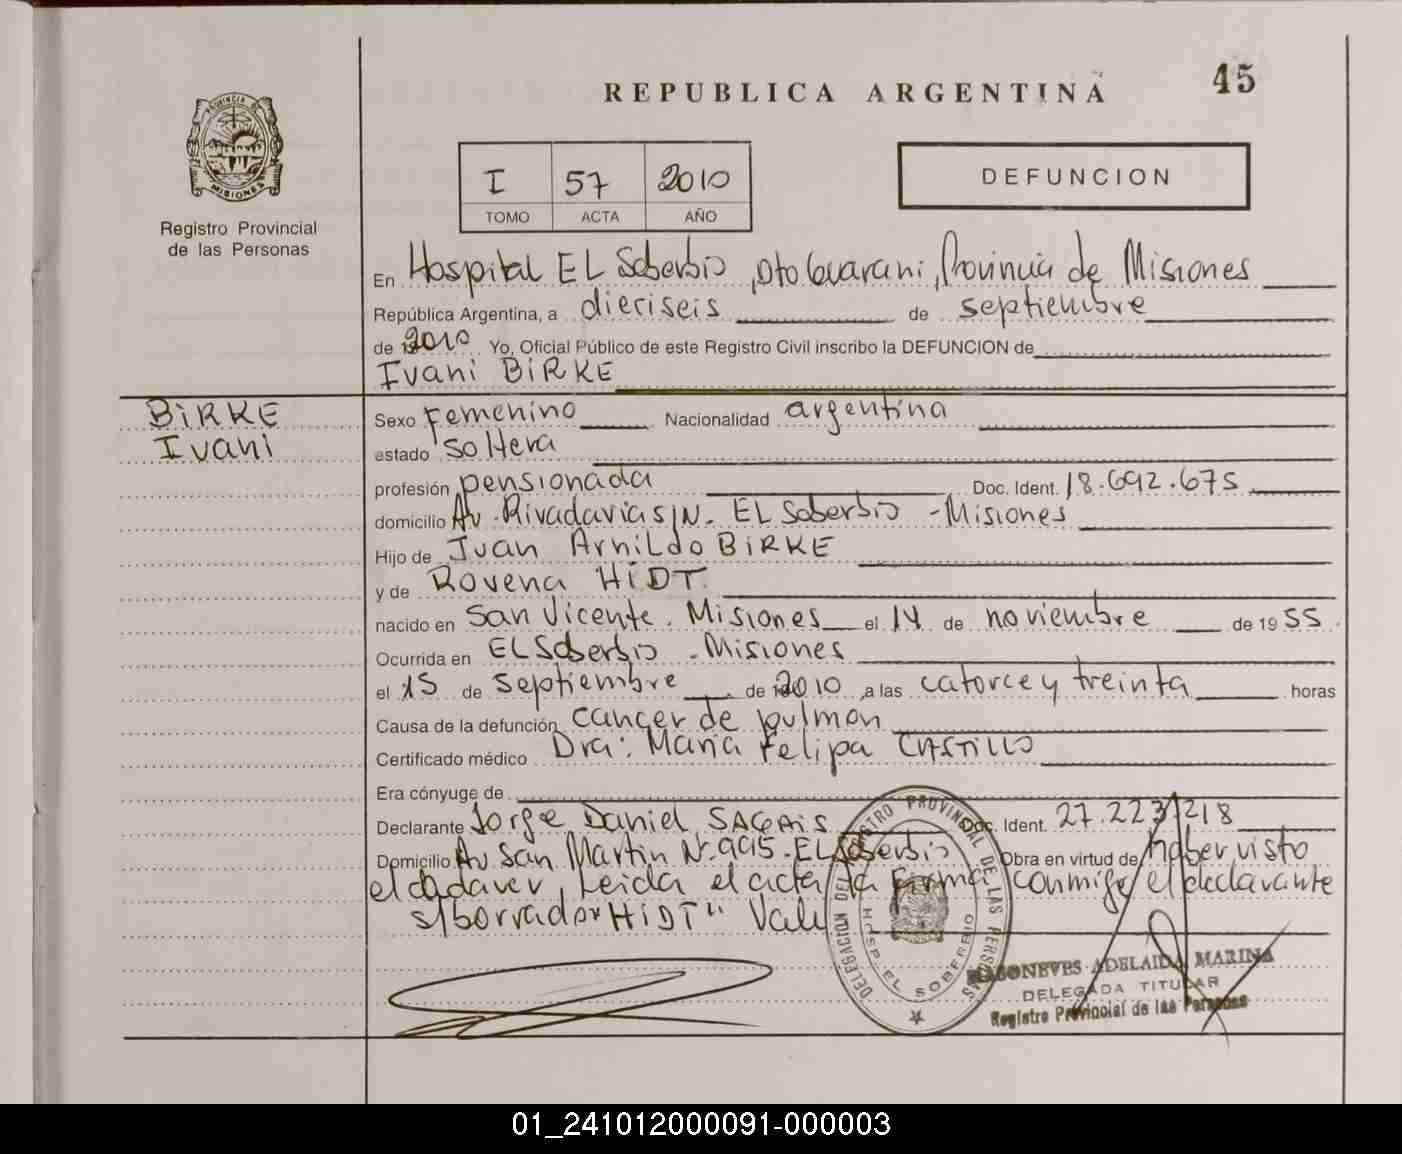 REPUBLICA ARGENTINA
45
PROVINCIA DE
MISIONES
Registro Provincial
de las Personas
I 57 2010
TOMO ACTA AÑO
DEFUNCION
En Hospital EL Soberbio, Dto Guarani, Provincia de Misiones
República Argentina, a dieciseis de septiembre
de 2010 Yo, Oficial Público de este Registro Civil inscribo la DEFUNCION de
Ivani BIRKE
BIRKE
Ivani
Sexo Femenino Nacionalidad argentina
estado soltera
profesión pensionada Doc. Ident. 18.692.675
domicilio Av. Rivadavia S/N. EL Soberbio - Misiones
Hijo de Juan Arnildo BIRKE
y de Rovena HIDT.
nacido en San Vicente. Misiones el 14 de noviembre de 1955
Ocurrida en EL Soberbio - Misiones
el 15 de septiembre de 2010 a las catorce y treinta horas
Causa de la defunción cancer de pulmon
Certificado médico Dra: Maria Felipa CASTILLO
Era cónyuge de
Declarante Jorge Daniel Doc. Ident. 27.223.218
Domicilio Av San Martin Nº 995 - EL Soberbio Obra en virtud de haber visto
el cadaver, Leida el acta la Firma conmigo el declarante
s/borrador HIDT" Vale
DELEGACION DEL REGISTRO PROVINCIAL DE LAS PERSONAS
HOSP. EL SOBERBIO
ADELAIDA MARINA
DELEGADA TITULAR
Registro Provincial de las Personas
01_241012000091-000003